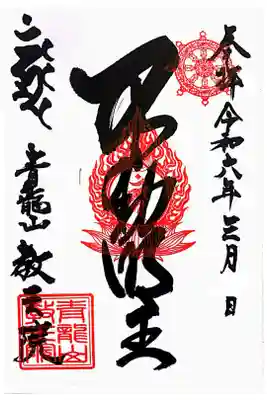 奉拝 令和六年三月 日
不動明王
青龍山 教王院
青龍山